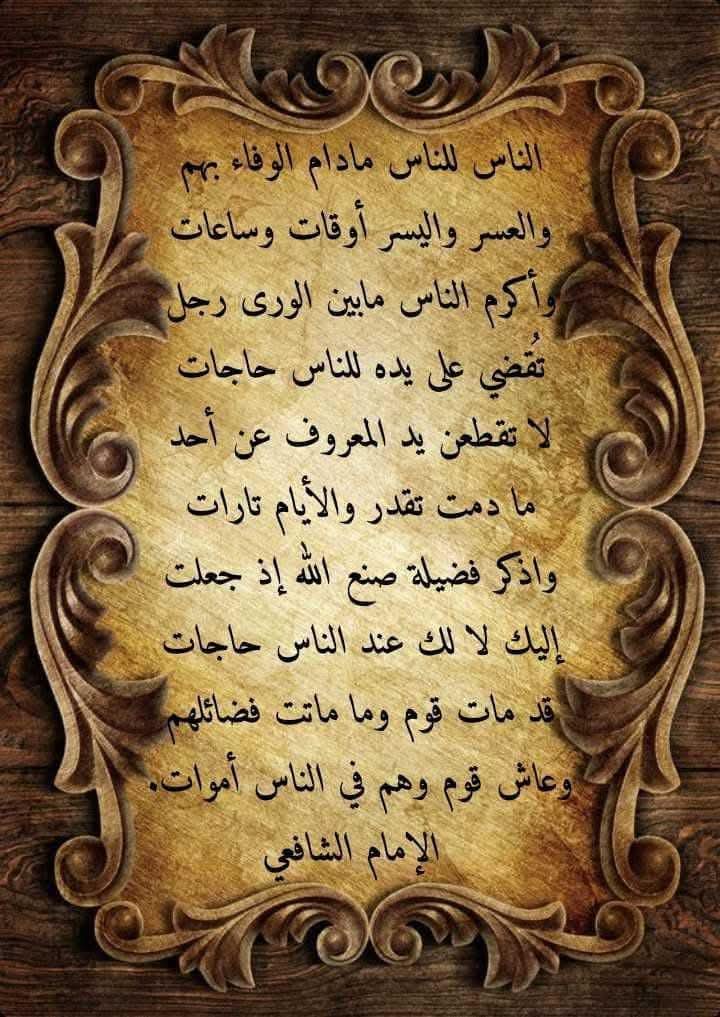 الناس للناس مادام الوفاء بهم
والعسر واليسر أوقات وساعات
وأكرم الناس مابين الورى رجل
تُقضي على يده للناس حاجات
لا تقطعن يد المعروف عن أحد
ما دمت تقدر والأيام تارات
واذكر فضيلة صنع الله إذ جعلت
إليك لا لك عند الناس حاجات
قد مات قوم وما ماتت فضائلهم
وعاش قوم وهم في الناس أموات.
الإمام الشافعي